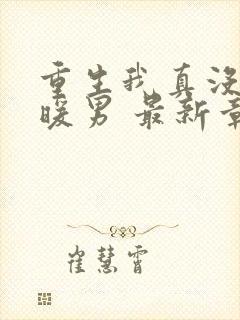 重生我真没
暖男 最新章
崔慧霄